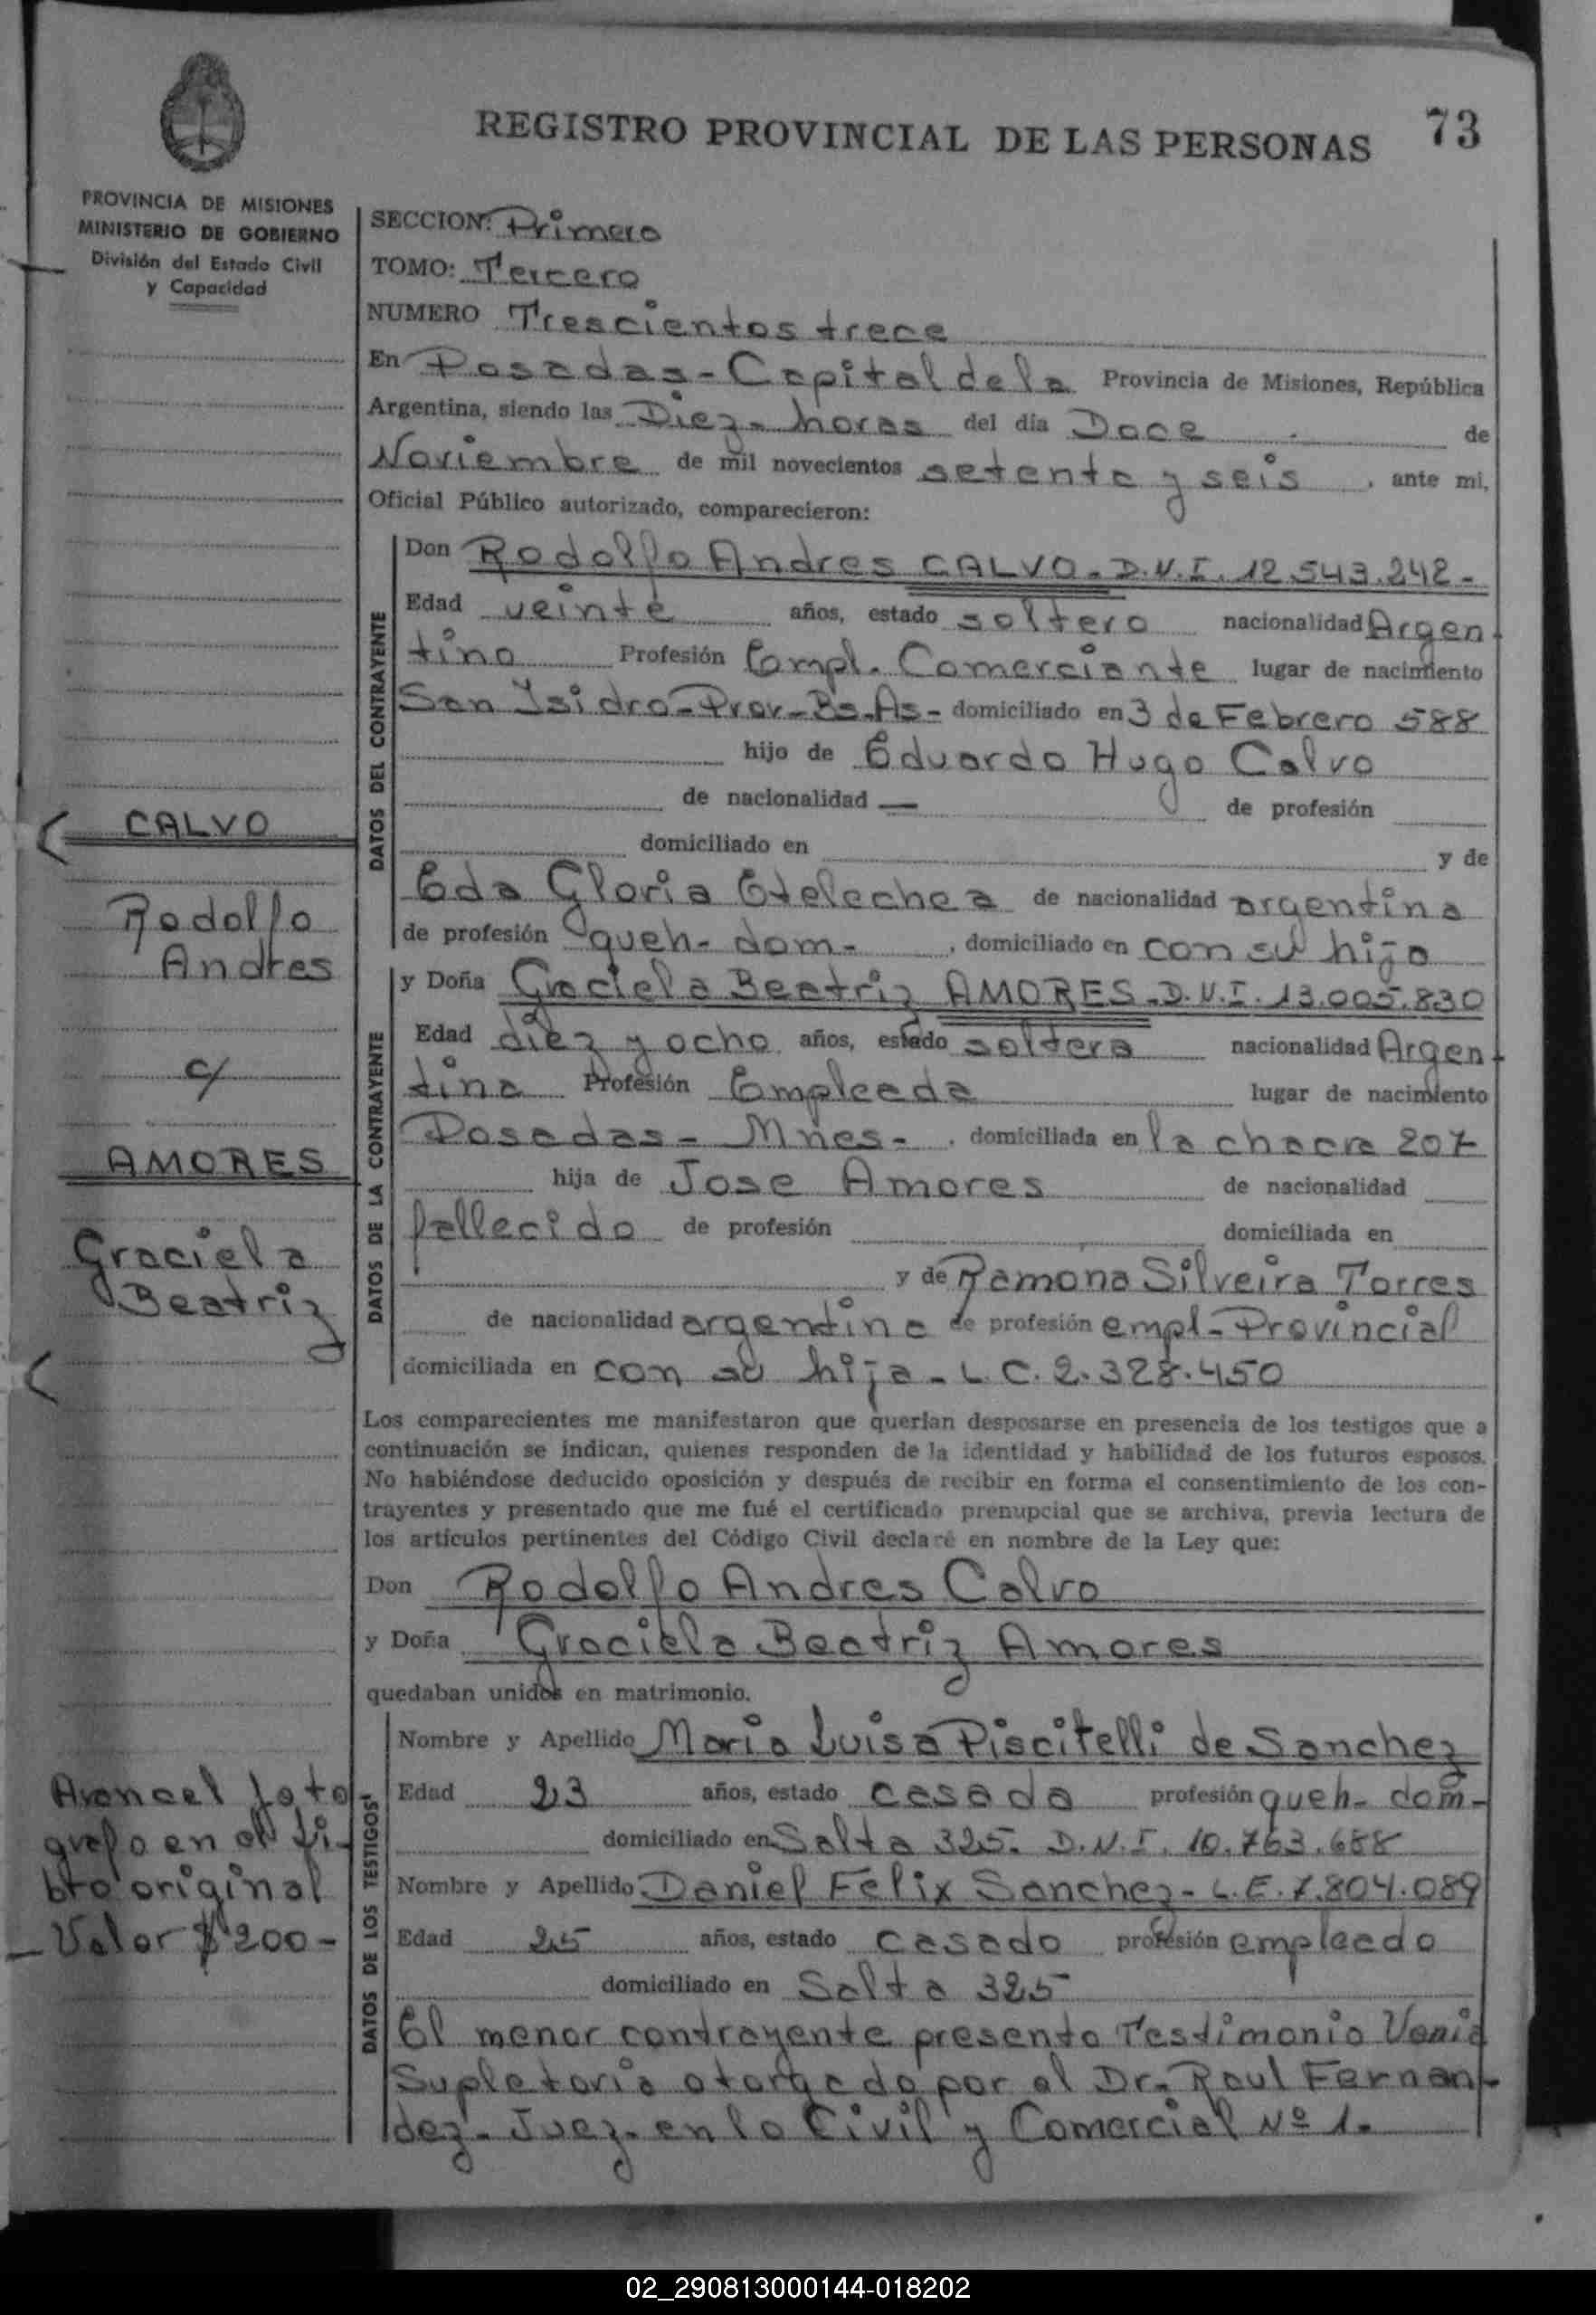 REGISTRO PROVINCIAL DE LAS PERSONAS 73
PROVINCIA DE MISIONES
MINISTERIO DE GOBIERNO
División del Estado Civil
y Capacidad
SECCION: Primera
TOMO: Tercero
NUMERO Trescientos trece
En Posadas - Capital de la Provincia de Misiones, República
Argentina, siendo las Diez - horas del día Doce de
Noviembre de mil novecientos setenta y seis, ante mi,
Oficial Público autorizado, comparecieron:
DATOS DEL CONTRAYENTE
Don Rodolfo Andres CALVO - D.N.I. 12.543.242 -
Edad veinte años, estado soltero nacionalidad Argen
tino Profesión Empl. Comerciante lugar de nacimiento
San Isidro - Prov - Bs. As - domiciliado en 3 de Febrero 588
hijo de Eduardo Hugo Calvo
de nacionalidad — de profesión
domiciliado en y de
Eda Gloria Etelechea de nacionalidad argentina
de profesión queh - dom - , domiciliado en con su hijo
DATOS DE LA CONTRAYENTE
y Doña Graciela Beatriz AMORES - D.N.I. 13.005.830
Edad diez y ocho años, estado soltera nacionalidad Argen
tina Profesión Empleada lugar de nacimiento
Posadas - Mnes - , domiciliada en la chacra 207
hija de Jose Amores de nacionalidad
fallecido de profesión domiciliada en
y de Ramona Silveira Torres
de nacionalidad argentina de profesión empl - Provincial
domiciliada en con su hija - L.C. 2.328.450
Los comparecientes me manifestaron que querían desposarse en presencia de los testigos que a
continuación se indican, quienes responden de la identidad y habilidad de los futuros esposos.
No habiéndose deducido oposición y después de recibir en forma el consentimiento de los con-
trayentes y presentado que me fué el certificado prenupcial que se archiva, previa lectura de
los artículos pertinentes del Código Civil declaré en nombre de la Ley que:
Don Rodolfo Andres Calvo
y Doña Graciela Beatriz Amores
quedaban unidos en matrimonio.
DATOS DE LOS TESTIGOS
Nombre y Apellido Maria Luisa Piscitelli de Sanchez
Edad 23 años, estado casada profesión queh - dom -
domiciliado en Salta 325. D.N.I. 10.763.688
Nombre y Apellido Daniel Felix Sanchez - L.E. 7.804.089
Edad 25 años, estado casado profesión empleado
domiciliado en Salta 325
El menor contrayente presenta Testimonio Venia
Supletoria otorgado por el Dr. Raul Fernan-
dez - Juez - en lo Civil y Comercial Nº 1.
CALVO
Rodolfo
Andres
c/
AMORES
Graciela
Beatriz
Arancel foto
grafo en el li-
bro original
Valor $ 200 -
02_290813000144-018202